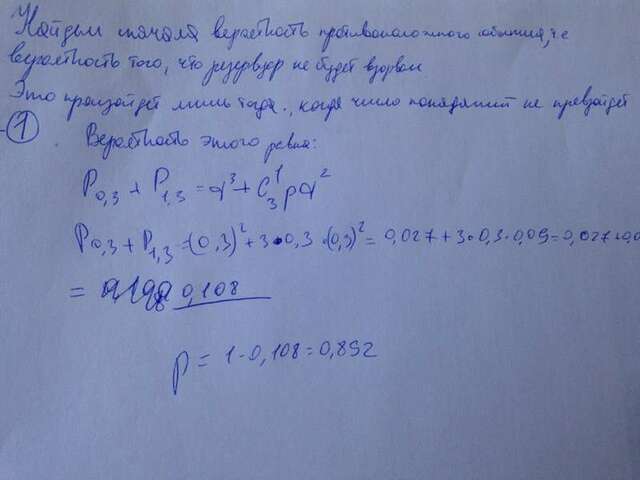 Найдем сначала вероятность противоположного события, т е
вероятность того, что резервуар не будет взорван
Это произойдет лишь тогда, когда число попаданий не превзойдет
1. Вероятность этого равна:
P₀,₃ + P₁,₃ = q³ + C₃¹pq²
P₀,₃ + P₁,₃ = (0,3)² + 3·0,3·(0,3)² = 0,027 + 3·0,3·0,09 = 0,027 + 0,0
= 0,108
p = 1 - 0,108 = 0,892